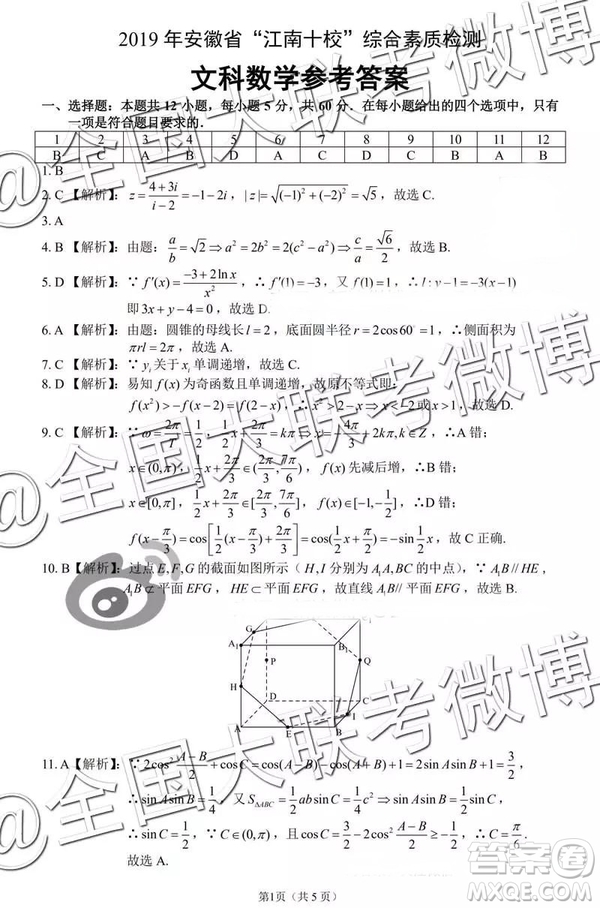 2019 年安徽省“江南十校”综合素质检测
文科数学参考答案
一、选择题：本题共 12 小题，每小题 5 分，共 60 分．在每小题给出的四个选项中，只有
一项是符合题目要求的．
1 2 3 4 5 6 7 8 9 10 11 12
B C A B D A C D C B A
1. B
2. C【解析】：z=(4+3i)/(i−2)=−1−2i，|z|=√((−1)²+(−2)²)=√5，故选 C.
3. A
4. B【解析】：由题：a/b=√2⇒a²=2b²=2(c²−a²)⇒c/a=√6/2，故选 B.
5. D【解析】：∵f′(x)=(−3+2ln x)/x²，∴f′(1)=−3，又 f(1)=1，∴l:y−1=−3(x−1)
即 3x+y−4=0，故选 D.
6. A【解析】：由题：圆锥的母线长 l=2，底面圆半径 r=2cos60°=1，∴侧面积为
πrl=2π，故选 A.
7. C【解析】：∵yᵢ关于xᵢ单调递增，故选 C.
8. D【解析】：易知 f(x)为奇函数且单调递增，故原不等式即：
f(x²)>−f(x−2)=f(2−x)，∴x²>2−x⇒x<−2或x>1，故选 D.
9. C【解析】：∵ω=2π/T=1/2，1/2x+2π/3=kπ⇒x=−4π/3+2kπ,k∈Z，∴A 错；
x∈(0,π)，1/2x+2π/3∈(2π/3,7π/6)，f(x)先减后增，∴B 错；
x∈[0,π]，1/2x+2π/3∈[2π/3,7π/6]，f(x)∈[−1,−1/2]，∴D 错；
f(x−π/3)=cos[1/2(x−π/3)+2π/3]=cos(1/2x+π/2)=−sin1/2x，故 C 正确.
10. B【解析】：过点E,F,G的截面如图所示（H,I分别为A₁A,BC的中点），∵A₁B∥HE，
A₁B⊄平面EFG，HE⊂平面EFG，故直线A₁B∥平面EFG，故选 B.
G
A₁
B₁
P
Q
H
D
C
I
A
E
B
11. A【解析】：∵2cos²(A−B)/2+cosC=cos(A−B)−cos(A+B)+1=2sinAsinB+1=3/2，
∴sinAsinB=1/4，又S△ABC=1/2absinC=1/4c²⇒sinAsinBsinC
∴sinC=1/2，∵C∈(0,π)，且cosC=3/2−2cos²(A−B)/2≥−1/2，∴C=π/6.
故选 A.
第1页（共 5 页）
@全国大联考微博
@全国大联考微博
答案圈
MXQE.COM